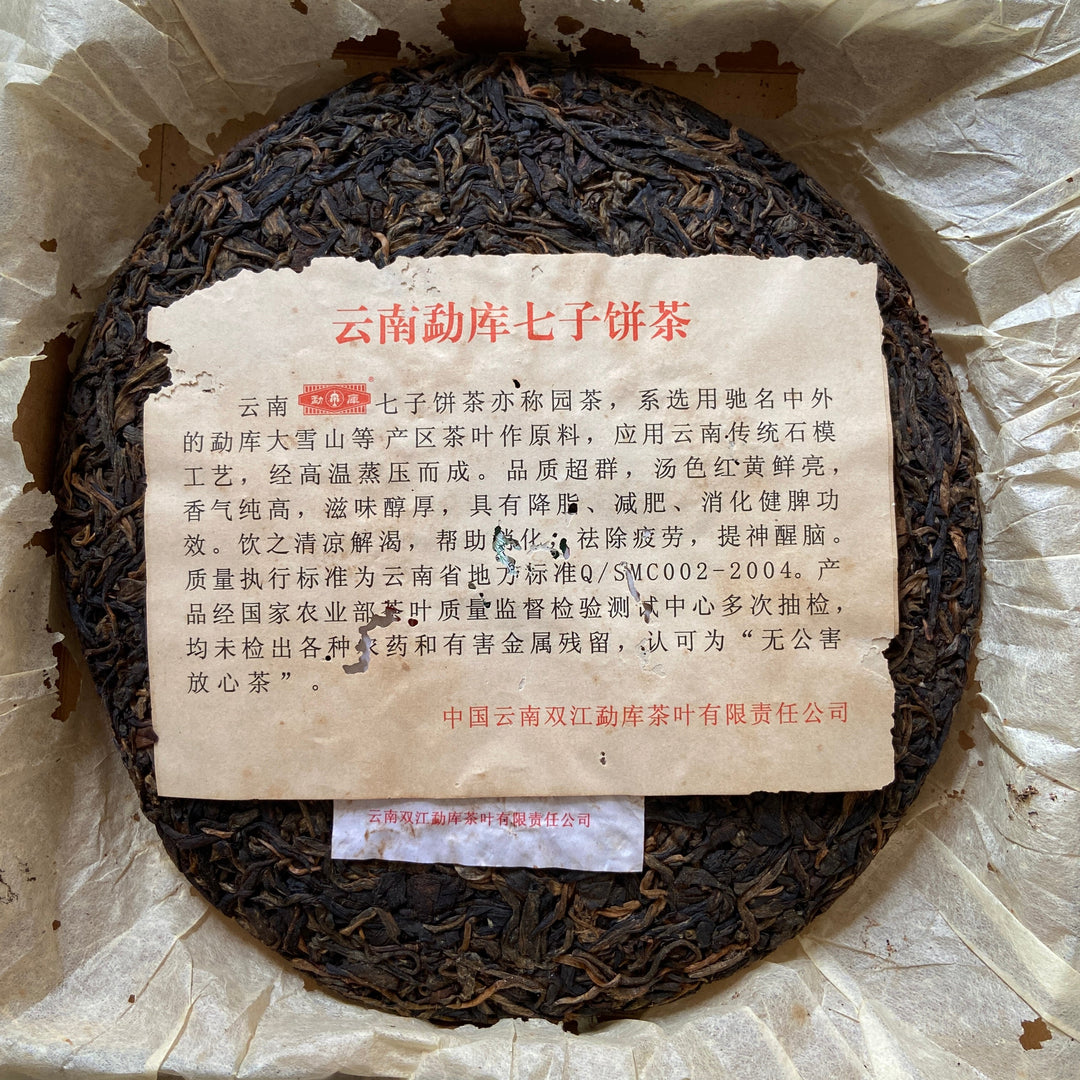 云南勐库七子饼茶
云南勐库七子饼茶亦称园茶，系选用驰名中外
的勐库大雪山等产区茶叶作原料，应用云南传统石模
工艺，经高温蒸压而成。品质超群，汤色红黄鲜亮，
香气纯高，滋味醇厚，具有降脂、减肥、消化健脾功
效。饮之清凉解渴，帮助消化，祛除疲劳，提神醒脑。
质量执行标准为云南省地方标准Q/SMC002-2004。产
品经国家农业部茶叶质量监督检验测试中心多次抽检，
均未检出各种农药和有害金属残留，认可为“无公害
放心茶”。
中国云南双江勐库茶叶有限责任公司
云南双江勐库茶叶有限责任公司